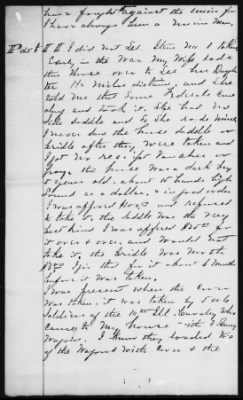 have fought against the union for
I have always been a Union man
I did not see Item No 1 taken
Early in the War My Wife rode
this Horse over to see her Daughter
1½ Miles distant, and she
told me that some Federals Came
along and took it. She had no
side saddle and to she rode
I never saw the horse saddle or
bridle after they were taken and
I got no receipt voucher or
pay the horse was a dark bay
5 years old, about 15 hands high
sound as a dollar & in good order
I was offered and refused
to take it, the Saddle was the very
best kind I was offered $25 for
it over & over, and would not
take it. the bridle was worth
I for it about a Month
before it was taken
I was present when the Corn
was taken; it was taken by 5 or 6
soldiers of the Ill. Cavalry who
Came to My house with 2 Army
Wagons. I they loaded two
of the Wagons with Corn & the